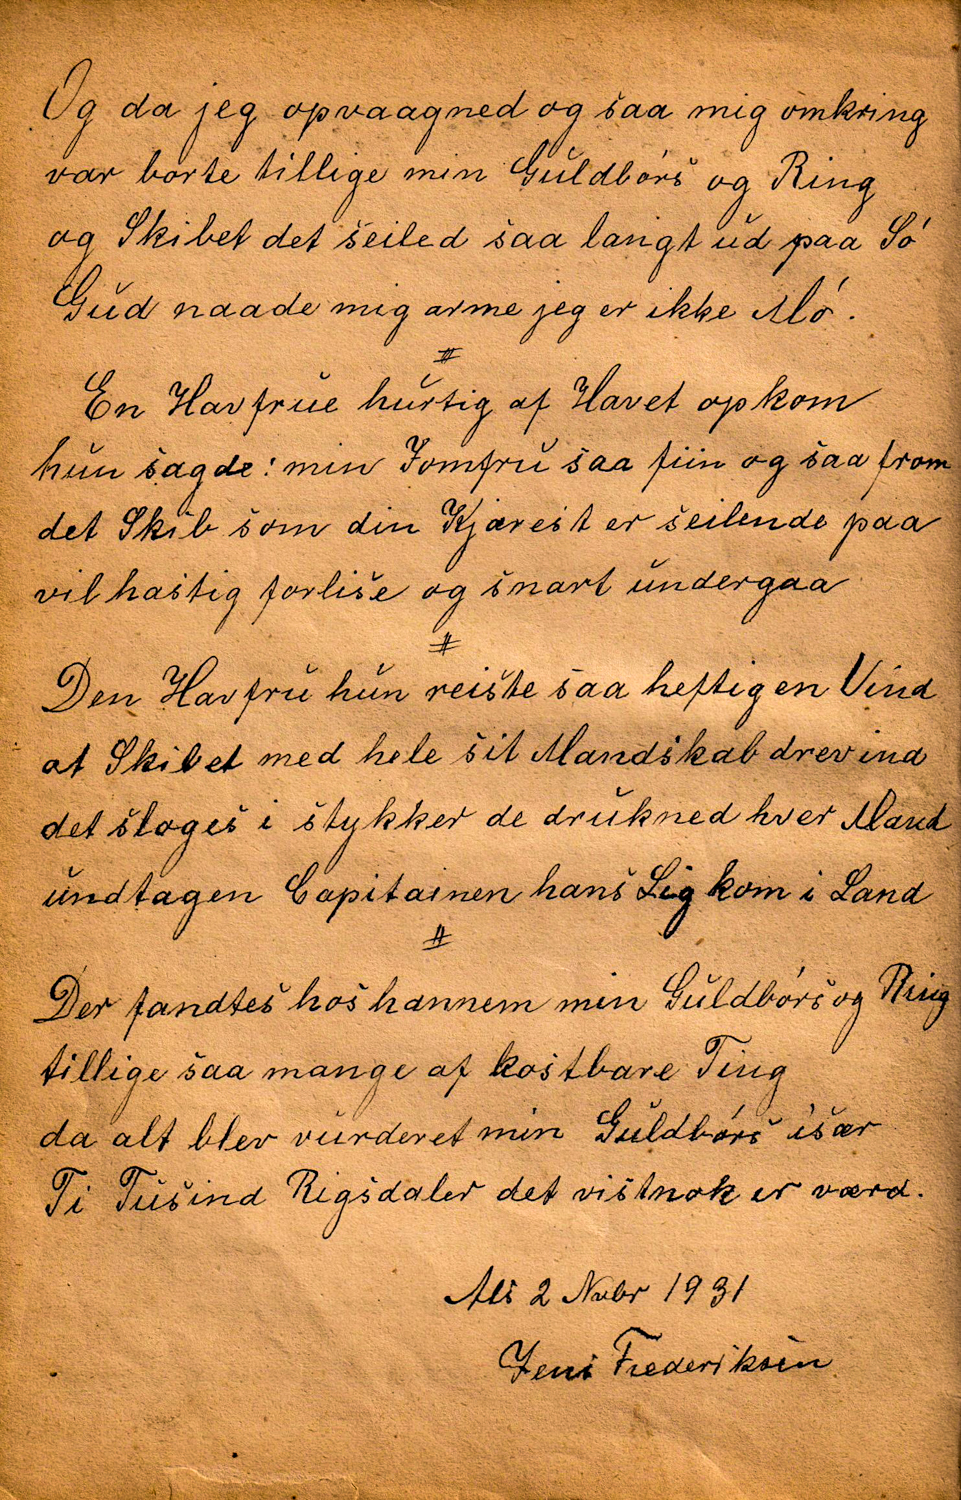 Og da jeg opvaagned og saa mig omkring
var borte tillige min Guldbörs og Ring
og Skibet det seiled saa langt ud paa Sö
Gud naade mig arme jeg er ikke Mö.
#
En Havfrue hurtig af Havet opkom
hun sagde: min Jomfru saa fiin og saa from
det Skib som din Kjærest er seilende paa
vil hastig forlise og snart undergaa
#
Den Havfru hun reiste saa heftig en Vind
at Skibet med hele sit Mandskab drev ind
det sloges i stykker de drukned hver Mand
undtagen Capitainen hans Lig kom i Land
#
Der fandtes hos hannem min Guldbörs og Ring
tillige saa mange af kostbare Ting
da alt blev vurderet min Guldbörs især
Ti Tusind Rigsdaler det vistnok er værd.
Als 2 Novbr 1931
Jens Frederiksen